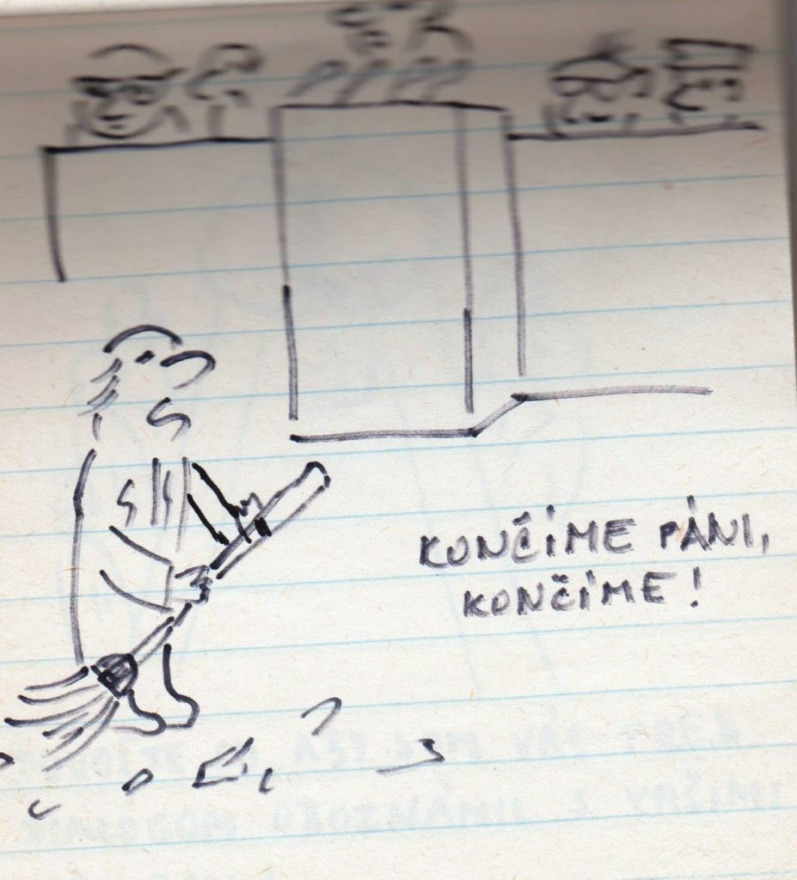 KONČÍME PÁNI,
KONČÍME!